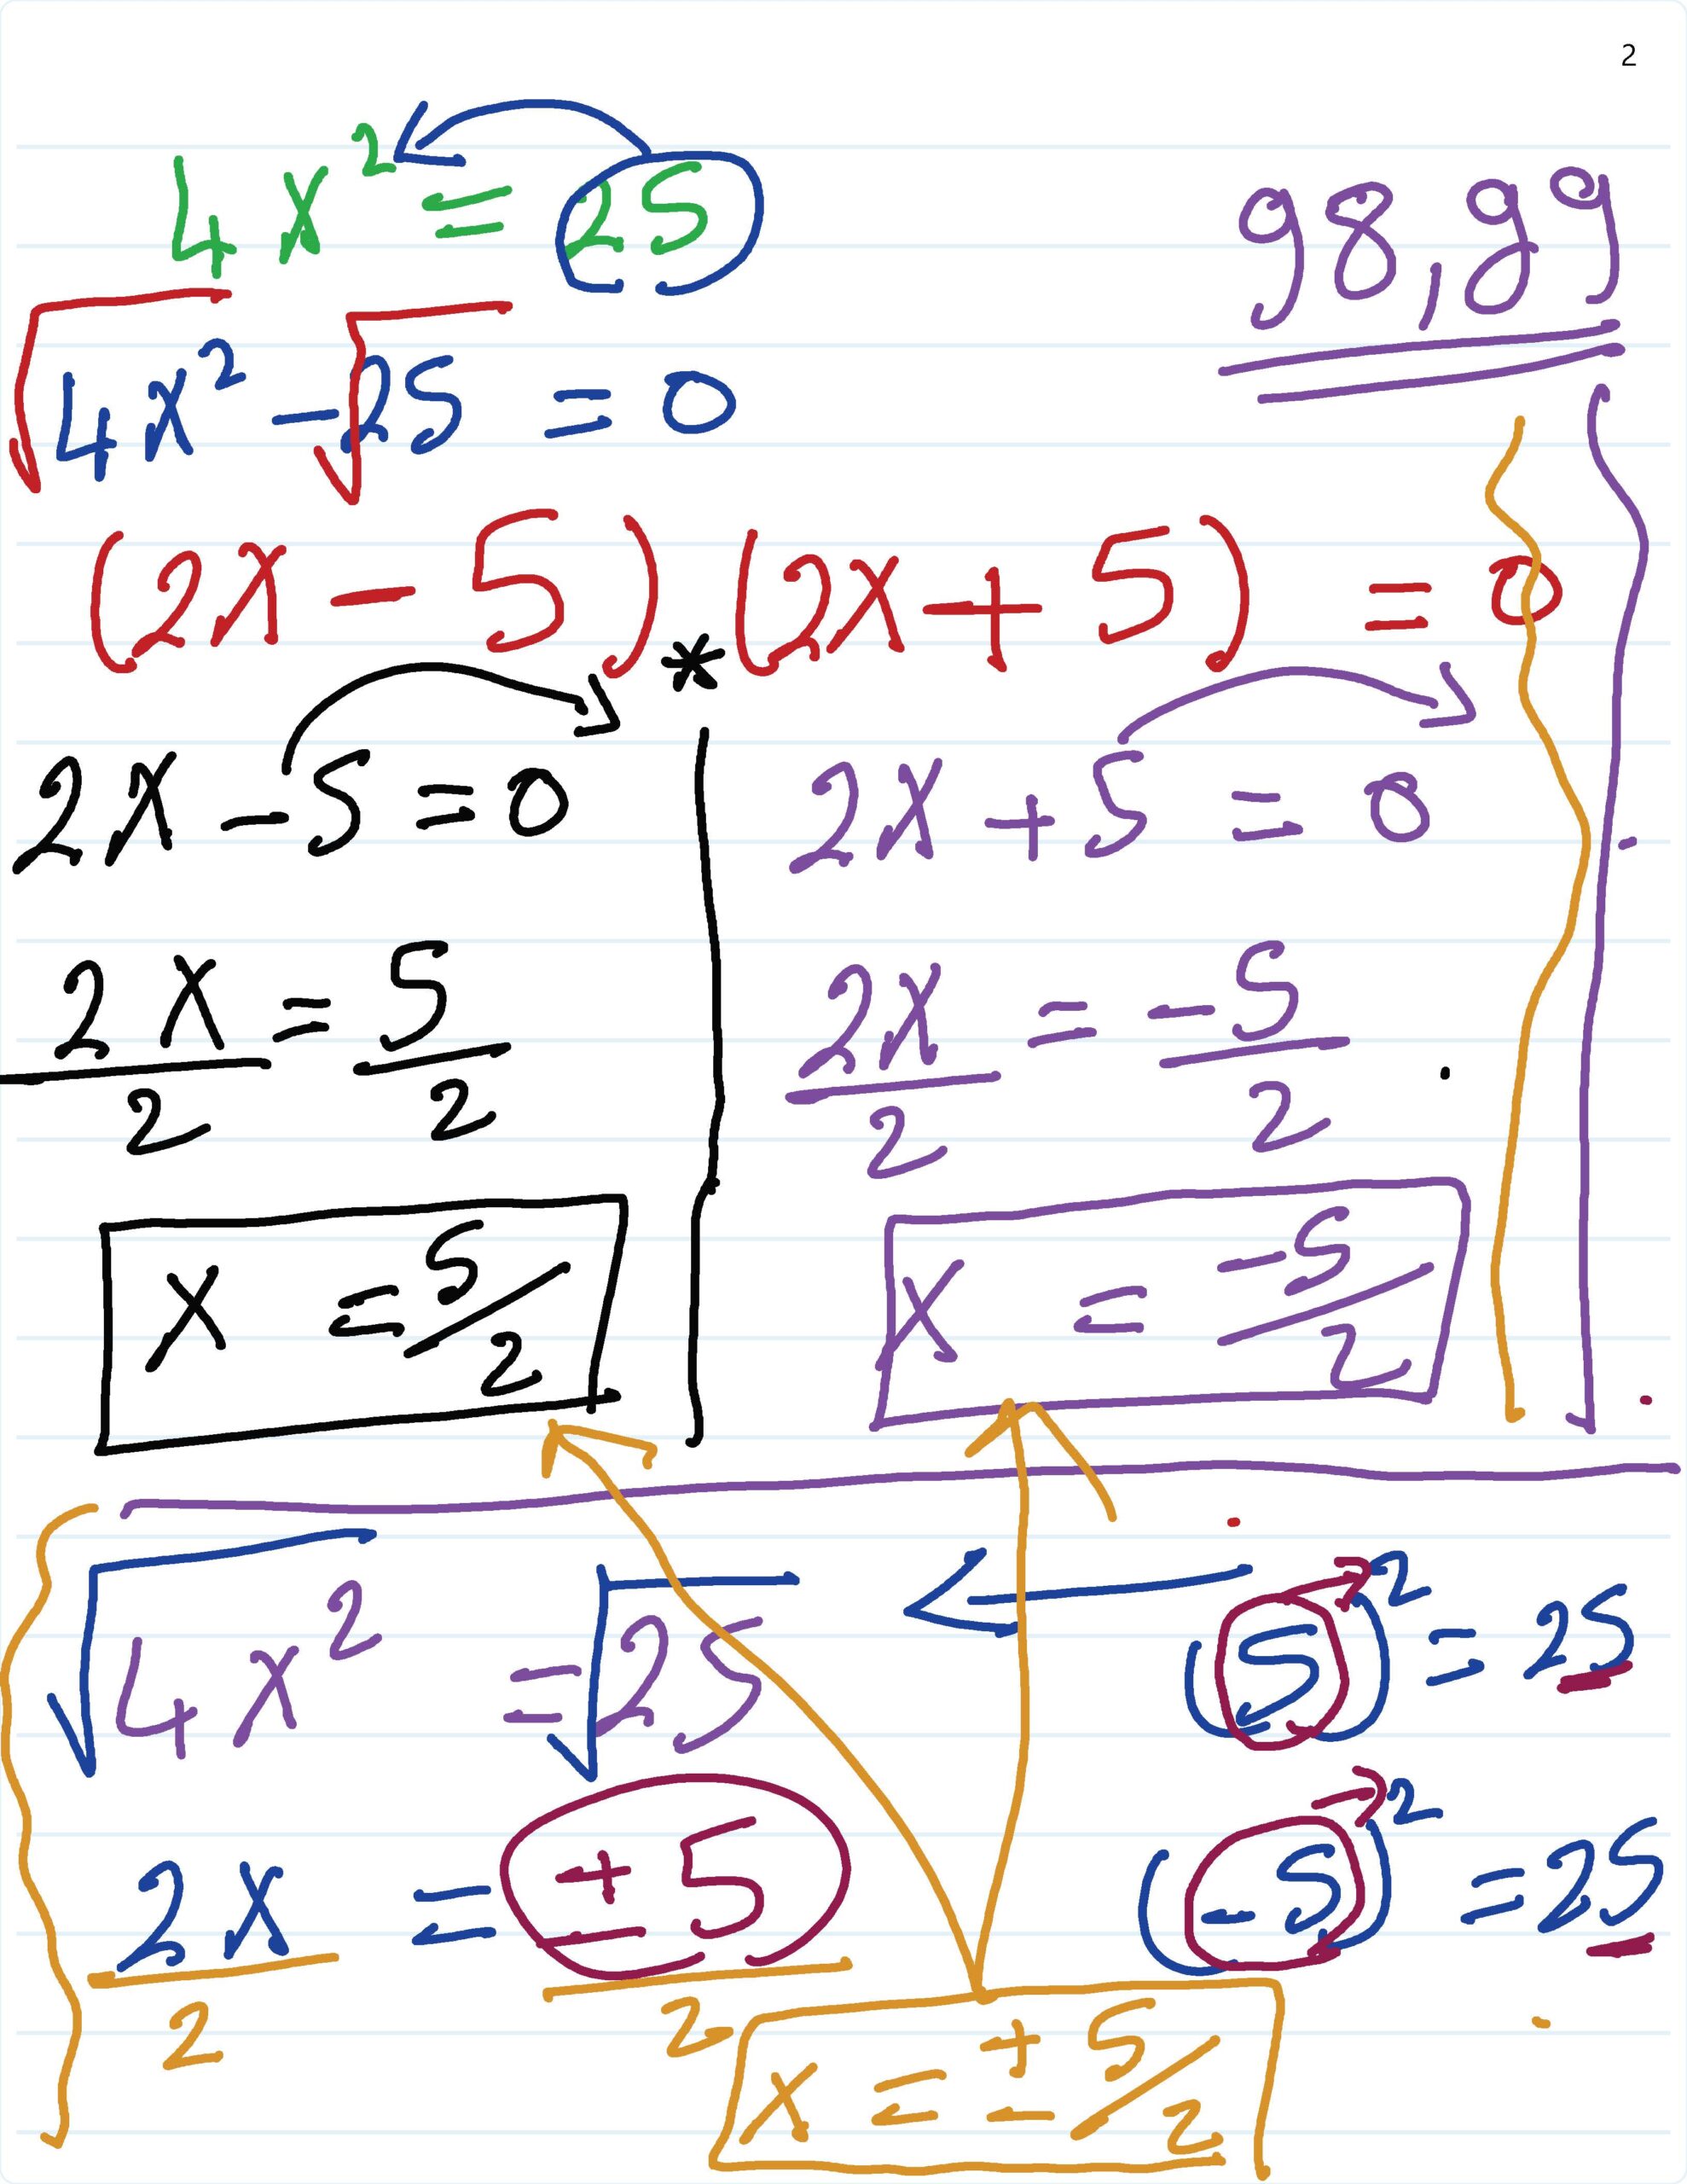 2
4x² = 25
98, 99
√4x² - √25 = 0
(2x - 5) * (2x + 5) = 0
2x - 5 = 0
2x/2 = 5/2
x = 5/2
2x + 5 = 0
2x/2 = -5/2
x = -5/2
√4x² = √25
2x/2 = ±5/2
x = ±5/2
(5)² = 25
(-5)² = 25